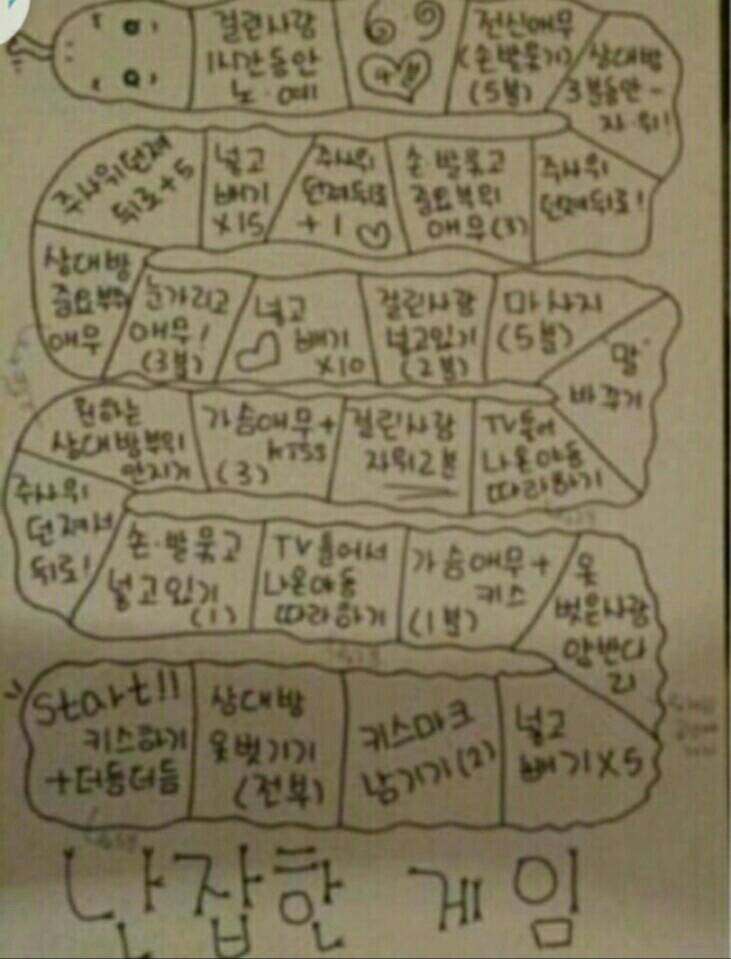 걸린사람
1시간동안
노·예
69
전신애무
(손발묶기)
(5분)
상대방
3분동안
자·위!
주사위던져
뒤로+5
넣고
빼기
X15
주사위
던져뒤로
+1♡
손·발묶고
중요부위
애무(3)
주사위
던져뒤로!
상대방
중요부위
애무
눈가리고
애무!
(3분)
넣고
♡ 빼기
X10
걸린사람
넣고있기
(2분)
마사지
(5분)
"말"
바꾸기
원하는
상대방부위
만지기
가슴애무+
kiss
(3)
걸린사람
자위2분
TV틀어
나온야동
따라하기
주사위
던져서
뒤로!
손·발묶고
넣고있기
(1)
TV틀어서
나온야동
따라하기
가슴애무+
키스
(1분)
옷
벗은사람
start!!
키스하기
+더듬더듬
상대방
옷벗기기
(전부)
키스마크
남기기(2)
넣고
빼기X5
난잡한 게임